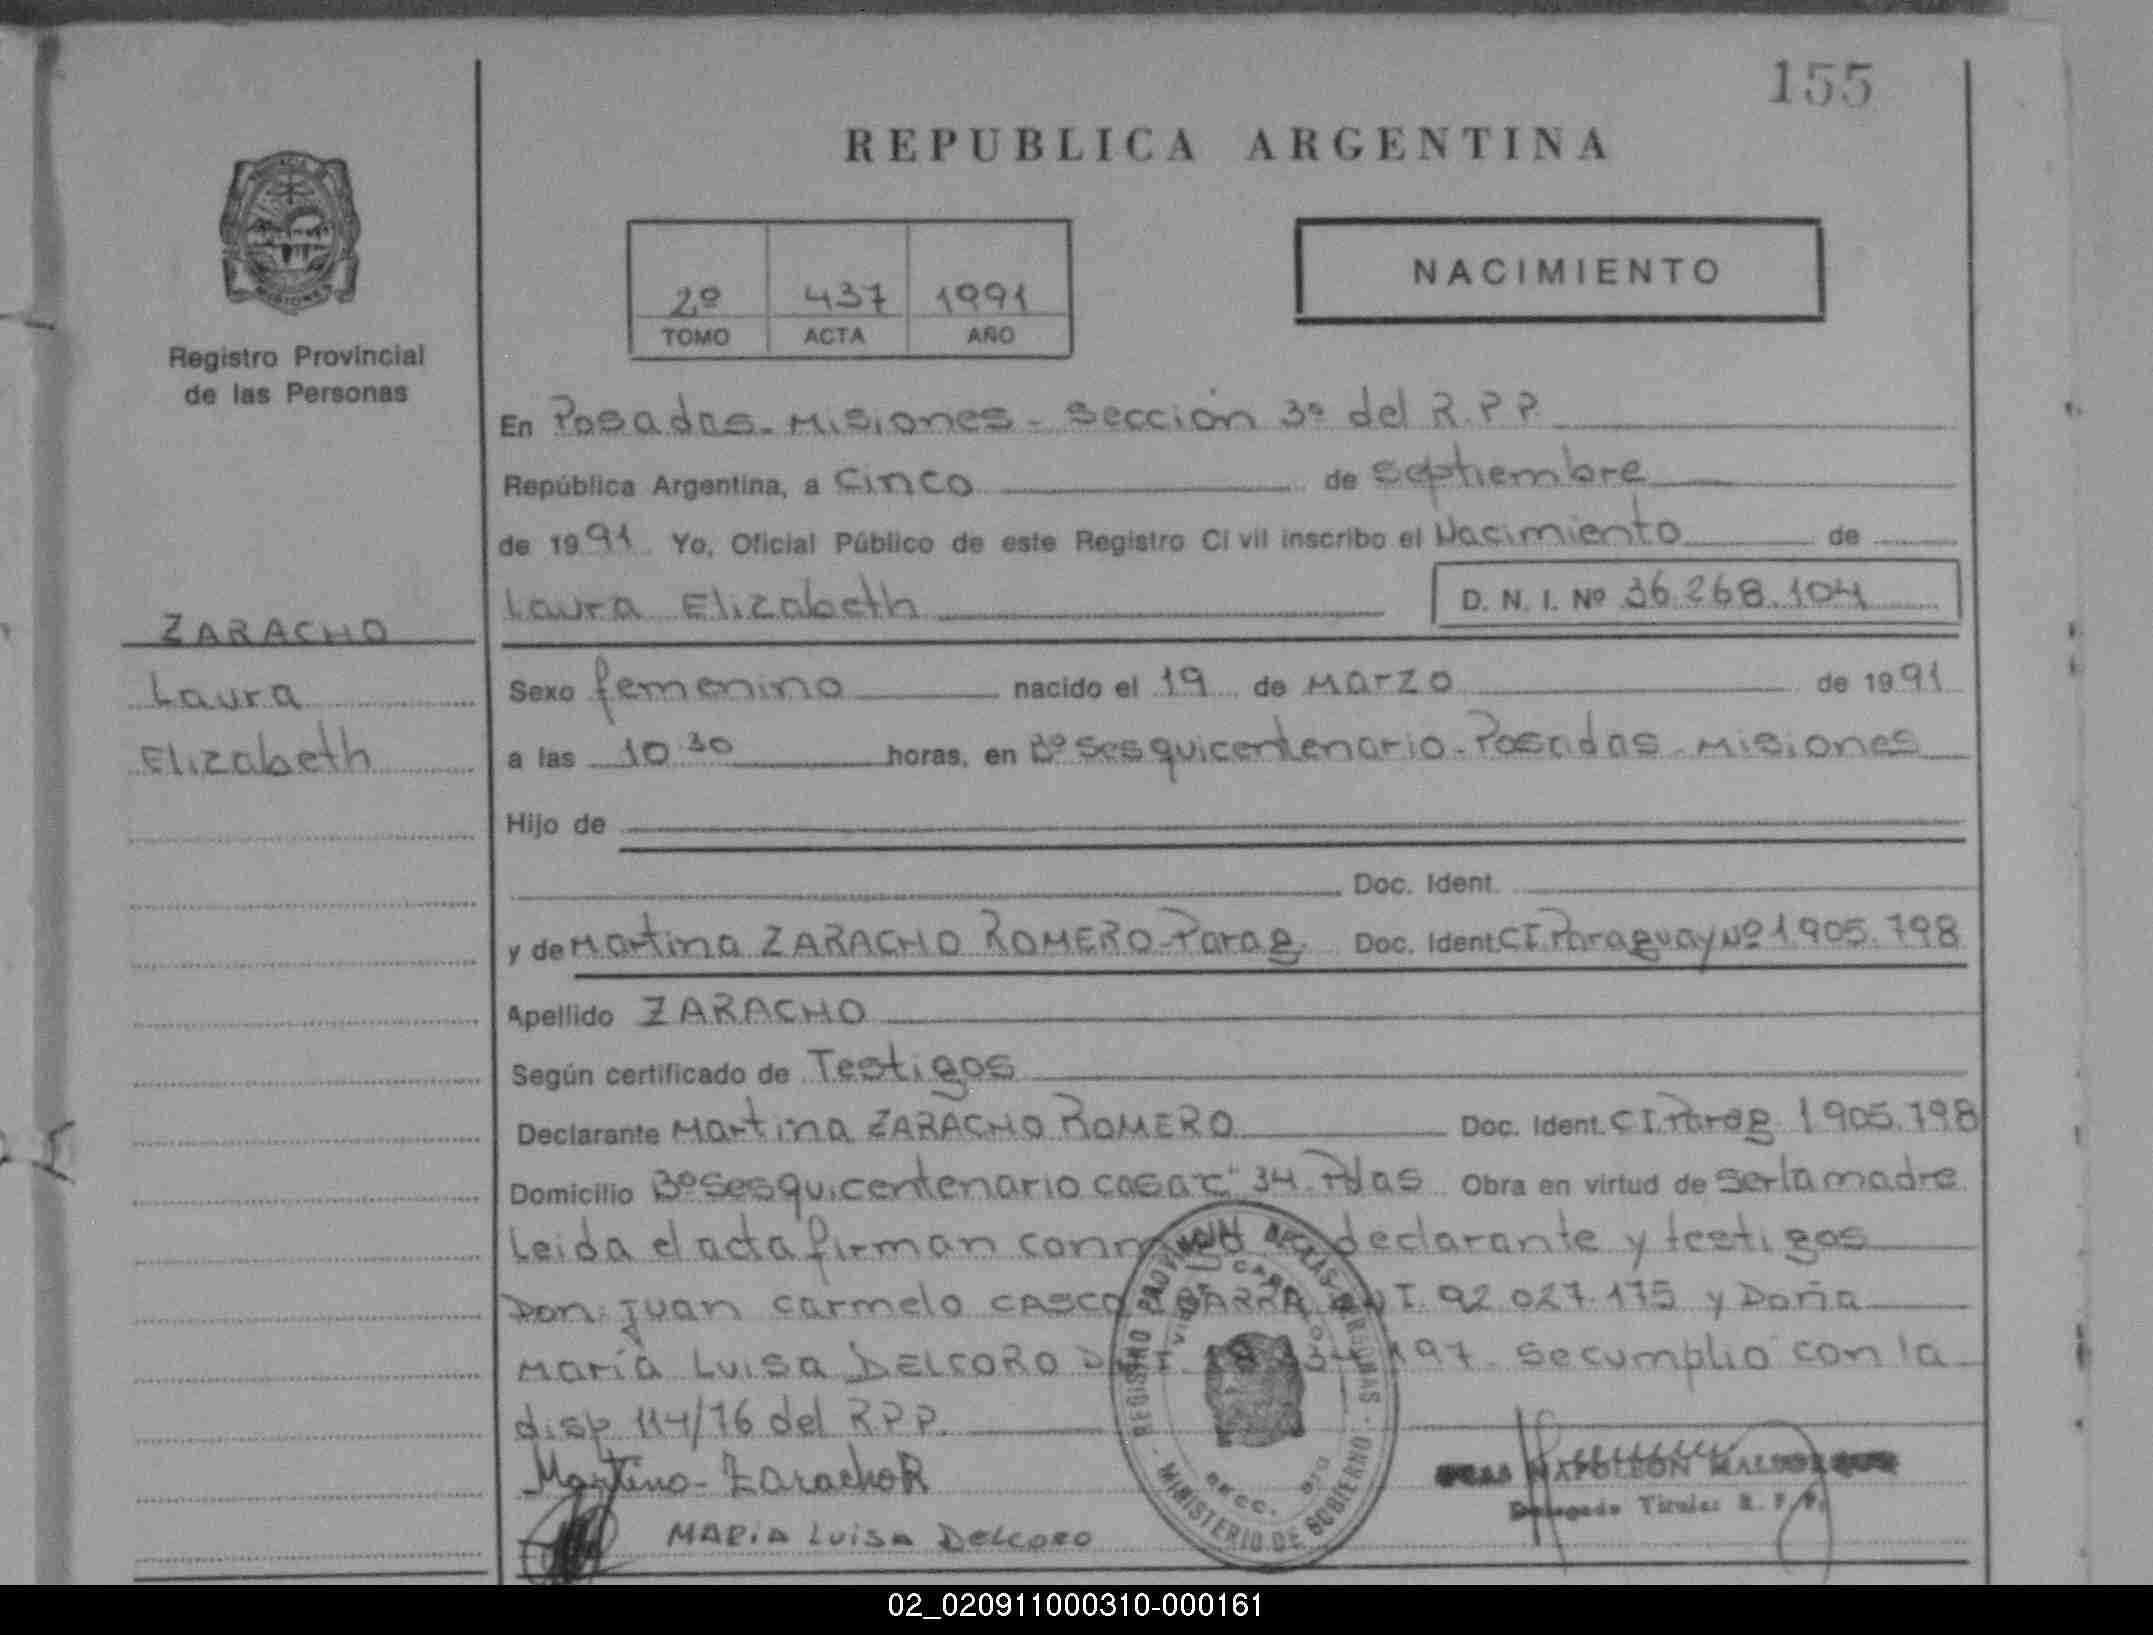 155
REPUBLICA ARGENTINA
2º 437 1991
TOMO ACTA AÑO
NACIMIENTO
MISIONES
Registro Provincial
de las Personas
ZARACHO
Laura
Elizabeth
En Posadas - Misiones - Sección 3º del R.P.P.
República Argentina, a Cinco de septiembre
de 1991 Yo, Oficial Público de este Registro Civil inscribo el Nacimiento de
Laura Elizabeth D. N. I. Nº 36.268.104
Sexo femenino nacido el 19 de Marzo de 1991
a las 10 30 horas, en Bº Sesquicentenario - Posadas - Misiones
Hijo de
Doc. Ident.
y de Martina ZARACHO ROMERO - Parag. Doc. Ident. CI Paraguay Nº 1.905.798
Apellido ZARACHO
Según certificado de Testigos
Declarante Martina ZARACHO ROMERO Doc. Ident. C I. Parag 1905.798
Domicilio Bº Sesquicentenario casa 34 - Pdas Obra en virtud de ser la madre
Leida el acta firman declarante y testigos
Don: Juan Carmelo CASCO 92.027.175 y Doña
María Luisa DELCORO 197. se cumplio con la
disp. 114/76 del R.P.P.
Martina - Zaracho R
MARIA LUISA DELCORO
REGISTRO PROVINCIAL DE LAS PERSONAS
MINISTERIO DE GOBIERNO
NAPOLEON
Delegado Titular R. P. P.
02_020911000310-000161